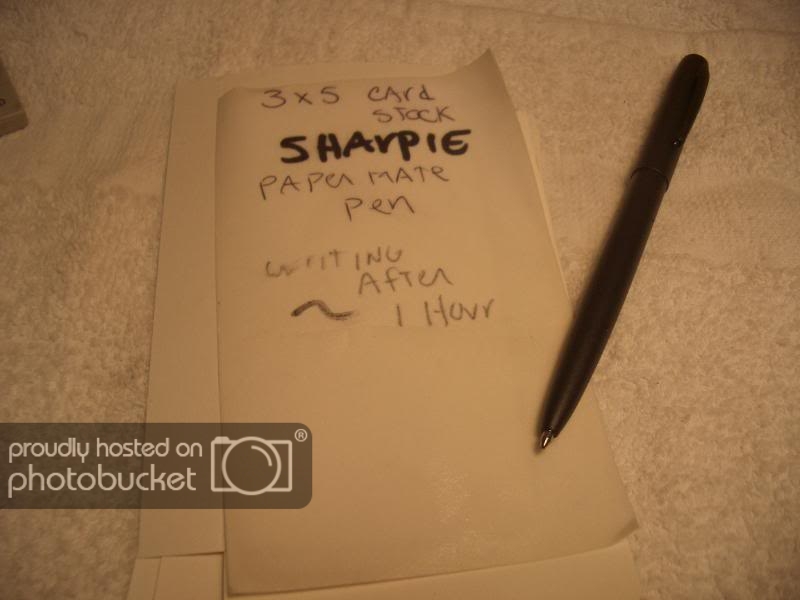 3x5 CArd
STOCK
SHArPIE
PAPEr MATE
Pen
WrITING
AFTEr
~ 1 Hour
proudly hosted on
photobucket®